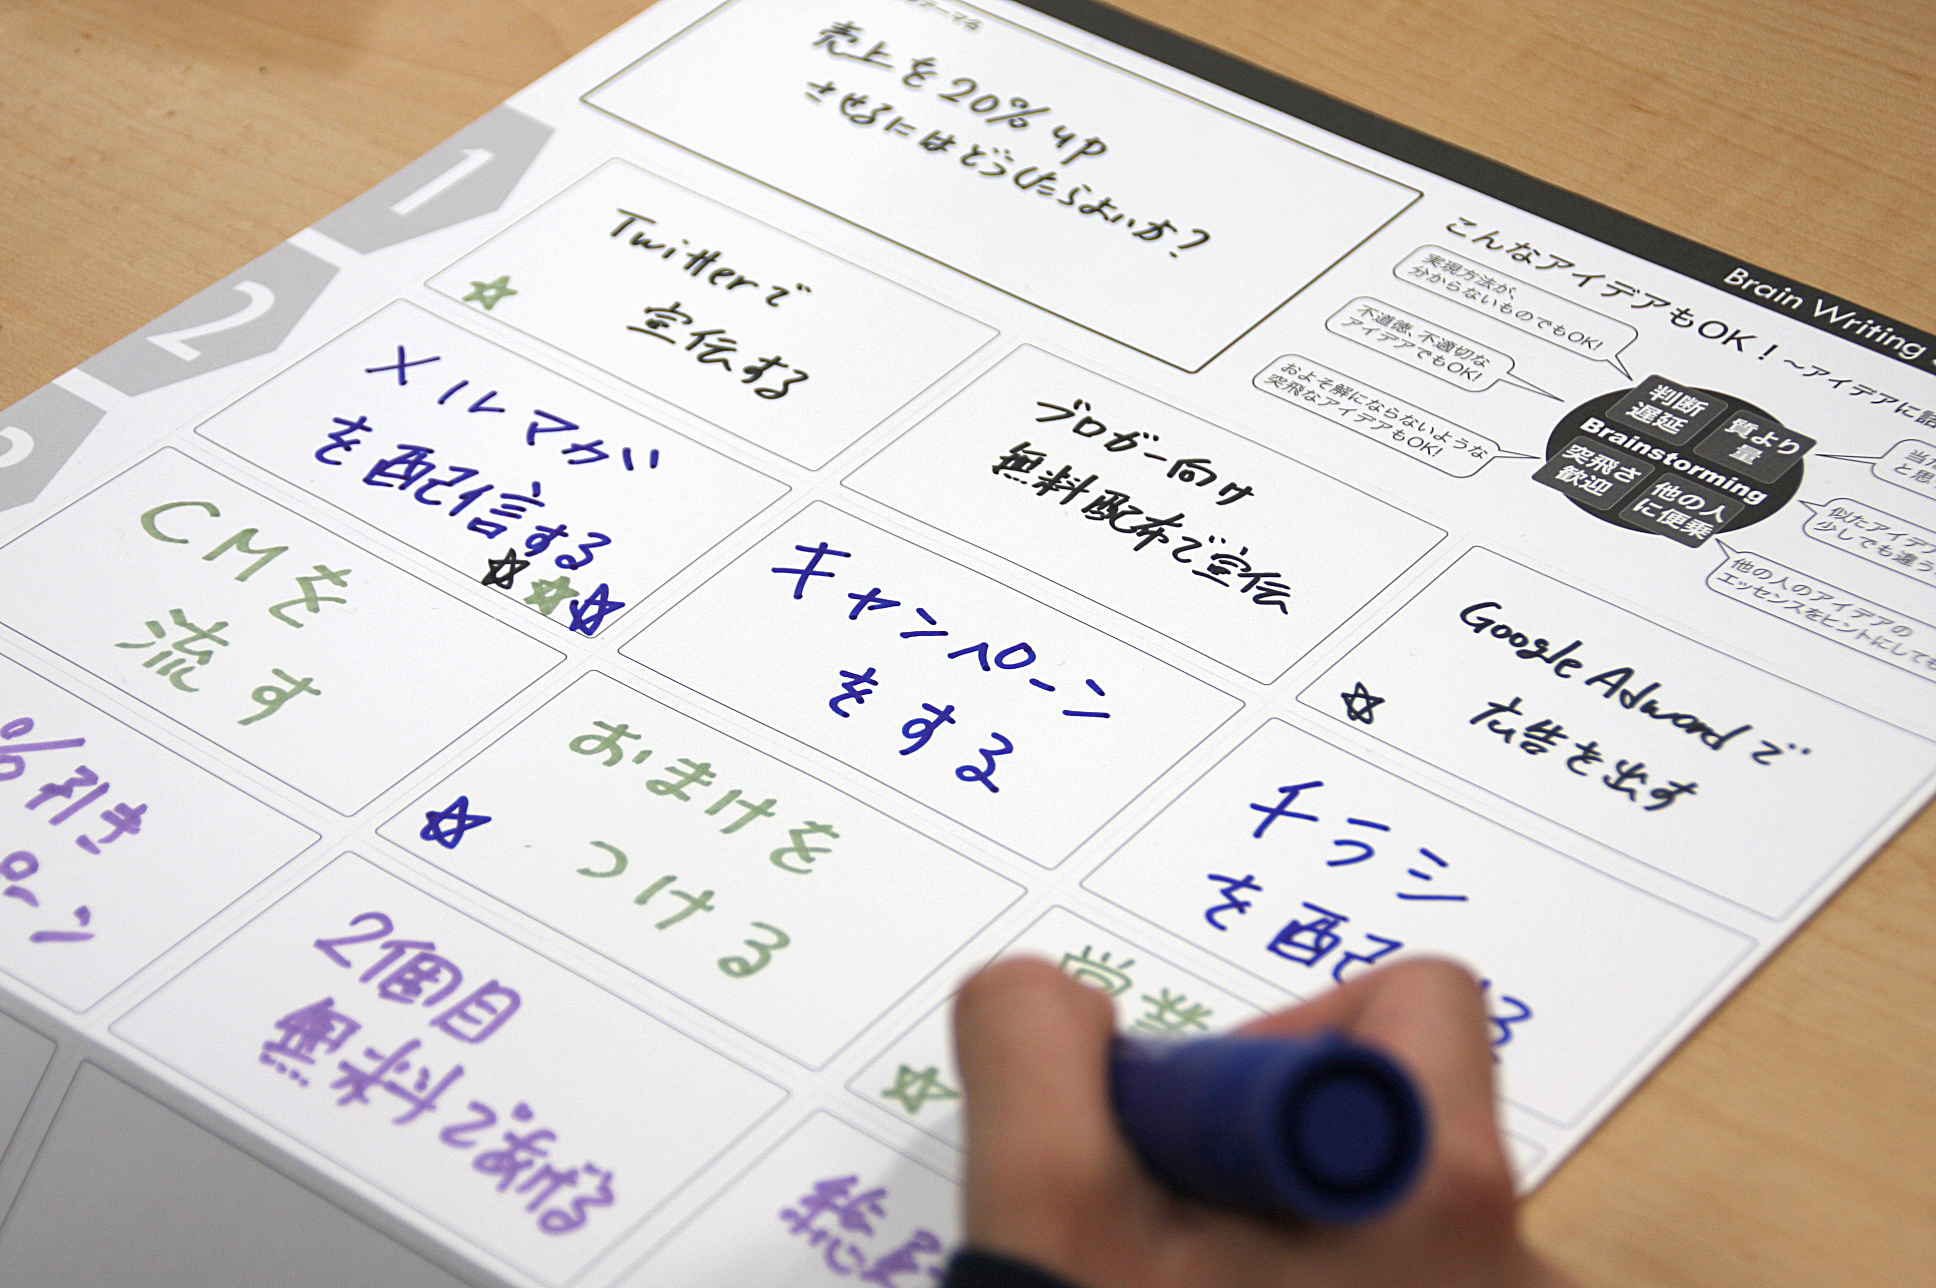 テーマ名
売上を20%up
させるにはどうしたらよいか?
Brain Writing
こんなアイデアもOK!~アイデアに詰
実現方法が、
分からないものでもOK!
不道徳、不適切な
アイデアでもOK!
およそ解にならないような
突飛なアイデアもOK!
判断
遅延
質より
量
Brainstorming
突飛さ
歓迎
他の人
に便乗
と思
似たアイデア
少しでも違う
他の人のアイデアの
エッセンスをヒントにしても
1
Twitterで
宣伝する
ブロガー向け
無料配布で宣伝
Google Adwordで
広告を出す
2
メルマガ
を配信する
キャンペーン
をする
チラシ
を配 る
3
CMを
流す
おまけを
つける
営業
%引き
ペーン
2個目
無料であげる
総